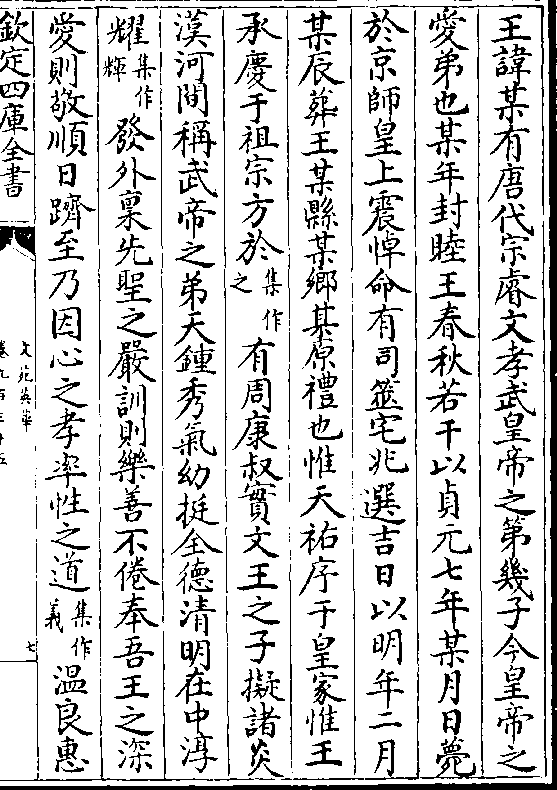 王諱某有唐代宗睿文孝武皇帝之第幾子今皇帝之
愛弟也某年封睦王春秋若干以貞元七年某月日薨
於京師皇上震悼命有司筮宅兆選吉日以明年二月
某辰葬王某縣某鄉某原禮也惟天祐序于皇家惟王
承慶于祖宗方於集作之有周康叔實文王之子擬諸炎
漢河間稱武帝之弟天鍾秀氣幼挺全德清明在中淳
耀集作輝發外稟先聖之嚴訓則樂善不倦奉吾王之深
愛則敬順日躋至乃因心之孝率性之道集作義温良惠
欽定四庫全書
文苑英華
卷九百三十五
七